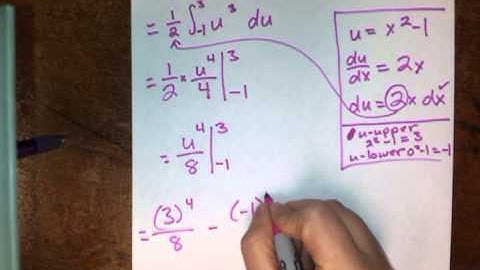 = 1/2 ∫₋₁³ u³ du
= 1/2 × u⁴/4 |³₋₁
= u⁴/8 |³₋₁
= (3)⁴/8 - (-1)
u = x²-1
du/dx = 2x
du = 2x dx
u-upper
2²-1=3
u-lower 0²-1=-1